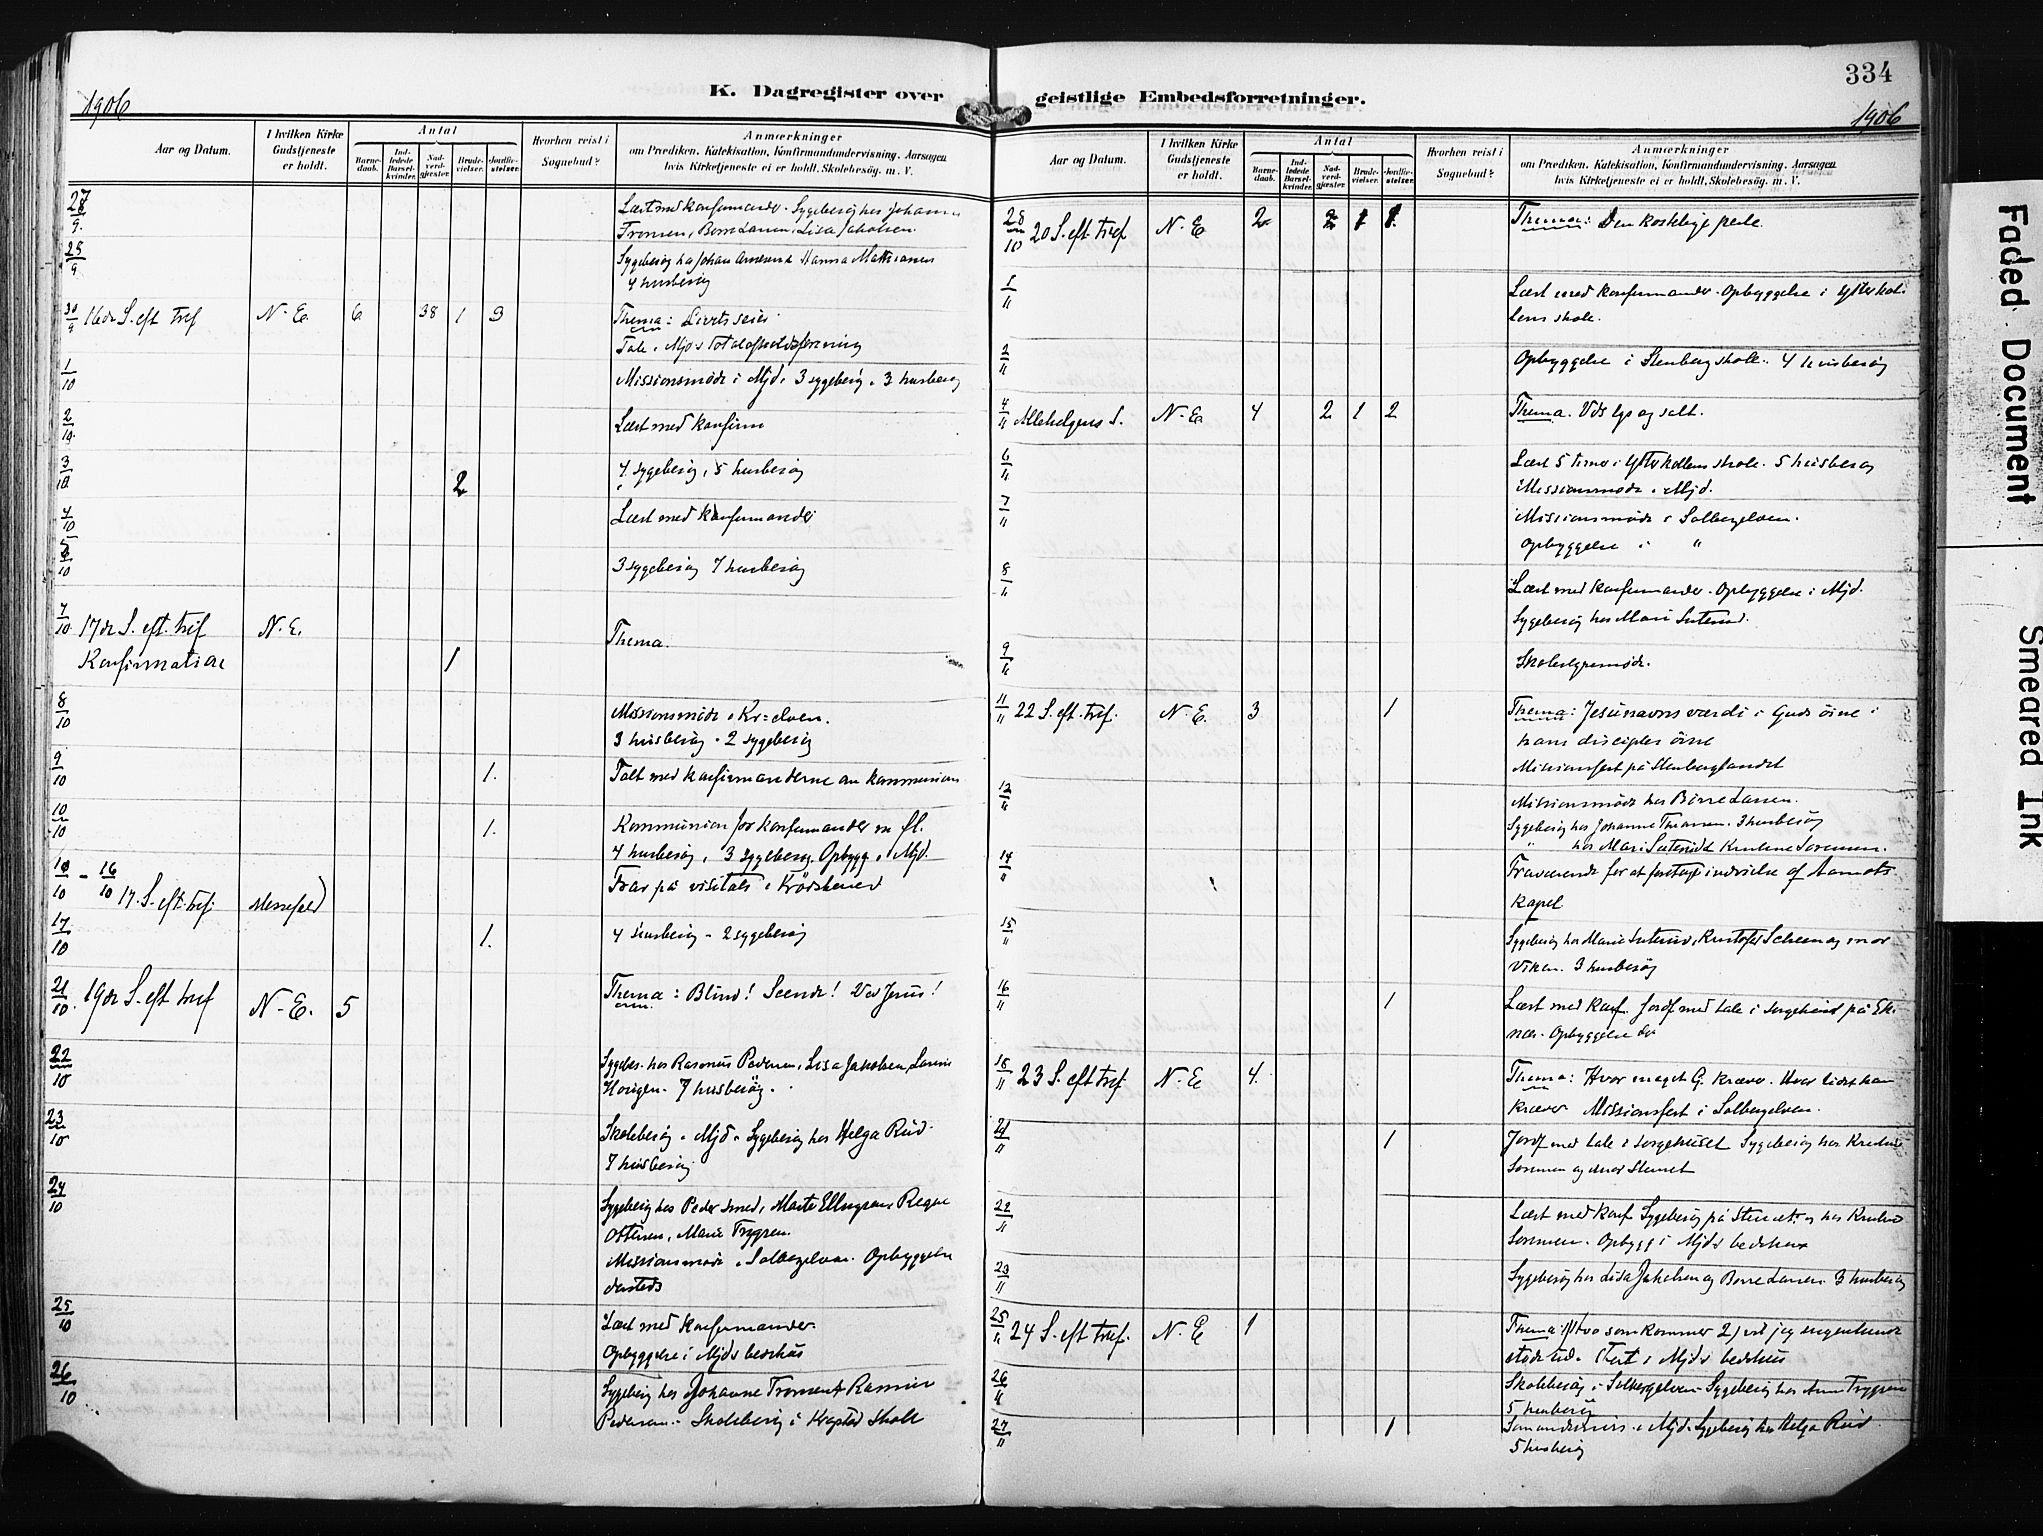 334
K. Dagregister over geistlige Embedsforretninger.
1906
1906
Aar og Datum.
I hvilken Kirke Gudstjeneste er holdt.
Antal
Barnedaab.
Indledede Barselkvinder.
Nadverdgjester.
Brudevielser.
Jordfæstelser.
Hvorhen reist i Sognebud?
Anmærkninger
om Prædiken, Katekisation, Konfirmandundervisning, Aarsagen
hvis Kirketjeneste ei er holdt, Skolebesøg, m. V.
27/9 Læst med konfirmander. Sygebesøg hos Johanne
Børre Larsen, Lisa Jakobsen.
25/9 Sygebesøg
4 husbesøg
30/9 16de S. eft tref N-E. 6 38 1 3 Thema: Livets seier
Missionsmøde i Mjd. 3 sygebesøg. 3 husbesøg
1/10
2/10 Læst med konfirm
3/10 2 4 sygebesøg, 5 husbesøg
4/10 Læst med konfirmander
5/10 3 sygebesøg 7 husbesøg
7/10 17de S. eft. tref N.E. Thema.
Konfirmation 1
8/10 Missionsmøde i Kr-elven.
3 husbesøg. 2 sygebesøg
9/10 1. Talt med konfirmanderne om kommunion
10/10 1. Kommunion for konfirmander m fl.
4 husbesøg, 3 sygebesøg. Opbygg. i Mjd.
10/10 - 16/10 17. S. eft. tref. Messefald Frav på visitats i Krødshered
17/10 1. 4 husbesøg - 2 sygebesøg
21/10 19de S. eft tref N-E. 5 Thema: Blind! Seende! Ved Jesus!
22/10 Sygebes. hos Rasmus Pedersen, Lisa Jakobsen,
7 husbesøg.
23/10 Skolebesøg i Mjd. Sygebesøg hos Helga Rud.
7 husbesøg
24/10 Sygebesøg hos Peder Smed, Marte Ellingsen,
Ottesen, Marie Trygsen.
Missionsmøde i Solbergelven. Opbyggelse
dersteds
25/10 Læst med konfirmander.
Opbyggelse i Mjds bedehus
26/10 Sygebesøg hos Johanne
Pedersen. Skolebesøg i skole
Aar og Datum.
I hvilken Kirke Gudstjeneste er holdt.
Antal
Barnedaab.
Indledede Barselkvinder.
Nadverdgjester.
Brudevielser.
Jordfæstelser.
Hvorhen reist i Sognebud?
Anmærkninger
om Prædiken, Katekisation, Konfirmandundervisning, Aarsagen
hvis Kirketjeneste ei er holdt, Skolebesøg, m. V.
28/10 20 S. eft tref N-E 2 2 1 1 Thema: Den kostelige perle.
1/11 Læst med konfirmander. Opbyggelse i Ytterkol-
lens skole.
2/11 Opbyggelse i Stenberg skole. 4 husbesøg
4/11 Allehelgens S. N-E. 4 2 1 2 Thema. lys og salt.
6/11 Læst 5 timer i Ytterkollens skole. 5 husbesøg
Missionsmøde i Mjd.
7/11 Missionsmøde i Solbergelven.
Opbyggelse i "
8/11 Læst med konfirmander. Opbyggelse i Mjd.
Sygebesøg hos Mari
9/11 Skolestyremøde.
11/11 22 S. eft. tref. N-E. 3 1 Thema: Jesu navns værdi i Guds øine i
hans disciples øine
Missionsfest på Stenberglandet
12/11 Missionsmøde hos Børre Larsen.
Sygebesøg hos Johanne 3 husbesøg
" hos Mari Sørensen.
14/11 Fraværende for at foretage indvielse af Aamots
kapel
15/11 Sygebesøg hos Marie Kristofer Scheen og mor
Viken. 3 husbesøg
16/11 1 Læst med konf. Jordf med tale i sorgehuset på Ek-
næs. Opbyggelse der
18/11 23 S. eft tref. N-E 4. Thema: Hvor meget G. kræver. Hvor lidet han
kræver Missionsfest i Solbergelven.
21/11 1 Jordf med tale i sorgehuset Sygebesøg hos
Sørensen og
22/11 Læst med konf Sygebesøg på og hos
Sørensen. Opbygg i Mjds bedehus
23/11 Sygebesøg hos Lisa Jakobsen og Børre Larsen 3 husbesøg
25/11 24 S. eft tref. N-E 1 Thema: 1) Hvo som kommer 2) vil jeg ingenlunde
støde ud. Fest i Mjds bedehus
26/11 Skolebesøg i Solbergelven. Sygebesøg hos Ann Trygsen
5 husbesøg
27/11 1 i Mjd. Sygebesøg hos Helga Rud.
5 husbesøg
Faded Document
Smeared Ink